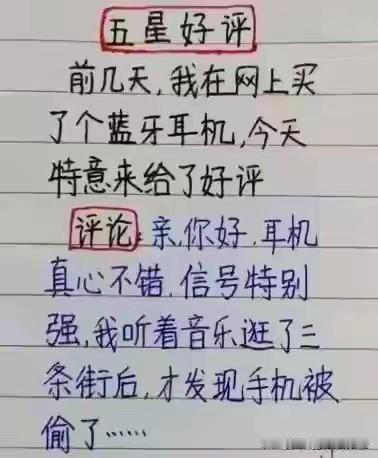 五星好评
前几天,我在网上买
了个蓝牙耳机,今天
特意来给了好评
评论:亲,你好,耳机
真心不错,信号特别
强,我听着音乐逛了三
条街后,才发现手机被
偷了……